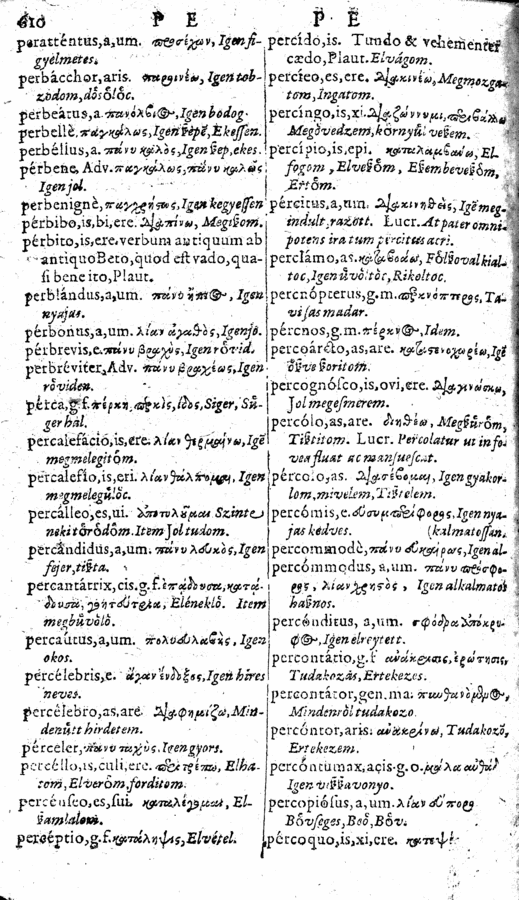 610 P E P E
perattentus,a,um. προσέχων, Igen fi-
gyelmetes.
perbacchor,aris. παροινέω, Igen tob-
zodom, dősőlőc.
perbeatus,a. πανόλβιος, Igen bodog.
perbellè. παγκάλως, Igen szepè, Ekessen.
perbéllus,a. πάνυ καλὸς, Igen szep, ekes.
pérbene, Adv. παγκάλως, πάνυ καλῶς
Igen jol.
perbenignè, παγχρήστως, Igen kegyessen
pérbibo,is,bi,ere. διαπίνω, Megiszom.
pérbito,is,ere. verbum antiquum ab
antiquo Beto, quod est vado, qua-
si bene ito, Plaut.
perblándus,a,um. πάνυ ἤπιος, Igen
nyajas.
pérbonus,a,um. λίαν ἀγαθὸς, Igen jo.
pérbrevis,e. πάνυ βραχὺς, Igen rövid.
perbréviter, Adv. πάνυ βραχέως, Igen
rőviden.
pérca,g.f. πέρκη, Siger, Sü-
ger hal.
percalefácio,is,ere. λίαν θερμαίνω, Igē
megmelegitőm.
percalefio,is,eri. λίαν θάλπομαι, Igen
megmelegűlőc.
percálleo,es,ui. Szinte
neki tőrődőm. Item Jol tudom.
percándidus,a,um. πάνυ λευκὸς, Igen
fejer, tiszta.
percantátrix,cis.g.f. ἐπᾴδουσα, κατά-
δουσα, Eléneklő. Item
megbűvőlő.
percautus,a,um. πολυευλαβὴς, Igen
okos.
percélebris,e. ἄγαν ἔνδοξος, Igen hires
neves.
percélebro,as,are. διαφημίζω, Min-
denütt hirdetem.
pérceler, πάνυ ταχὺς, Igen gyors.
percéllo,is,culi,ere. περιτρέπω, Elha-
tom, Elverőm, forditom.
percénseo,es,sui. καταλέγομαι, El-
szamlalom.
percéptio,g.f. κατάληψις, Elvétel.
percído,is. Tundo & vehementer
cædo, Plaut. Elvágom.
percíeo,es,ere. διακινέω, Megmozga-
tom, Ingatom.
percíngo,is,xi. διαζώννυμι, περιβάλλω
Megővedzem, kőrnyűl veszem.
percípio,is,epi. καταλαμβάνω, El
fogom, Elveszőm, Eszembeveszőm,
Ertőm.
pércitus,a,um. διακινηθεὶς, Igē meg-
indult, razott. Lucr. At pater omni-
potens ira tum percitus acri.
perclámo,as. καταβοάω, Főlszoval kial-
toc, Igen űvőltőc, Rikoltoc.
percnópterus,g.m. περκνόπτερος, Ta-
visas madar.
pércnos,g.m. πέρκνος, Idem.
percoárcto,as,are. καταστενοχωρέω, Igē
őszve szoritom.
percognósco,is,ovi,ere. διαγινώσκω,
Jol megesmerem.
percólo,as,are. διηθέω, Megszűrőm,
Tisztitom. Lucr. Percolatur ut info-
vea fluat ac mansuescat.
pércolo,as. διασέβομαι, Igen gyakor-
lom, mivelem, Tisztelem.
percómis,e. Igen nya-
jas kedves. (kalmatossan.
percommodè, πάνυ εὐκαίρως, Igen al-
percómmodus,a,um. πάνυ πρόσφο-
ρος, λίαν χρηστὸς, Igen alkalmatos
hasznos.
percónditus, a,um. σφόδρα ἀπόκρυ-
φος, Igen elreytett.
percontátio,g.f. ἀνάκρισις, ἐρώτησις,
Tudakozás, Ertekezes.
percontátor,gen.ma. πυνθανόμενος,
Mindenről tudakozo.
percóntor,aris. ἀνακρίνω, Tudakoző,
Ertekezem.
percóntumax,acis.g.o. μάλα
Igen viszszavonyo.
percopiósus,a,um. λίαν
Bővseges, Beő, Bőv.
pércoquo,is,xi,ere.